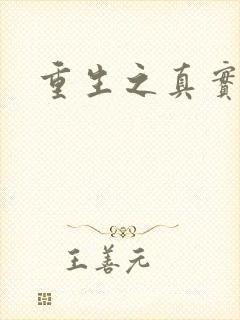 重生之真實
王善元